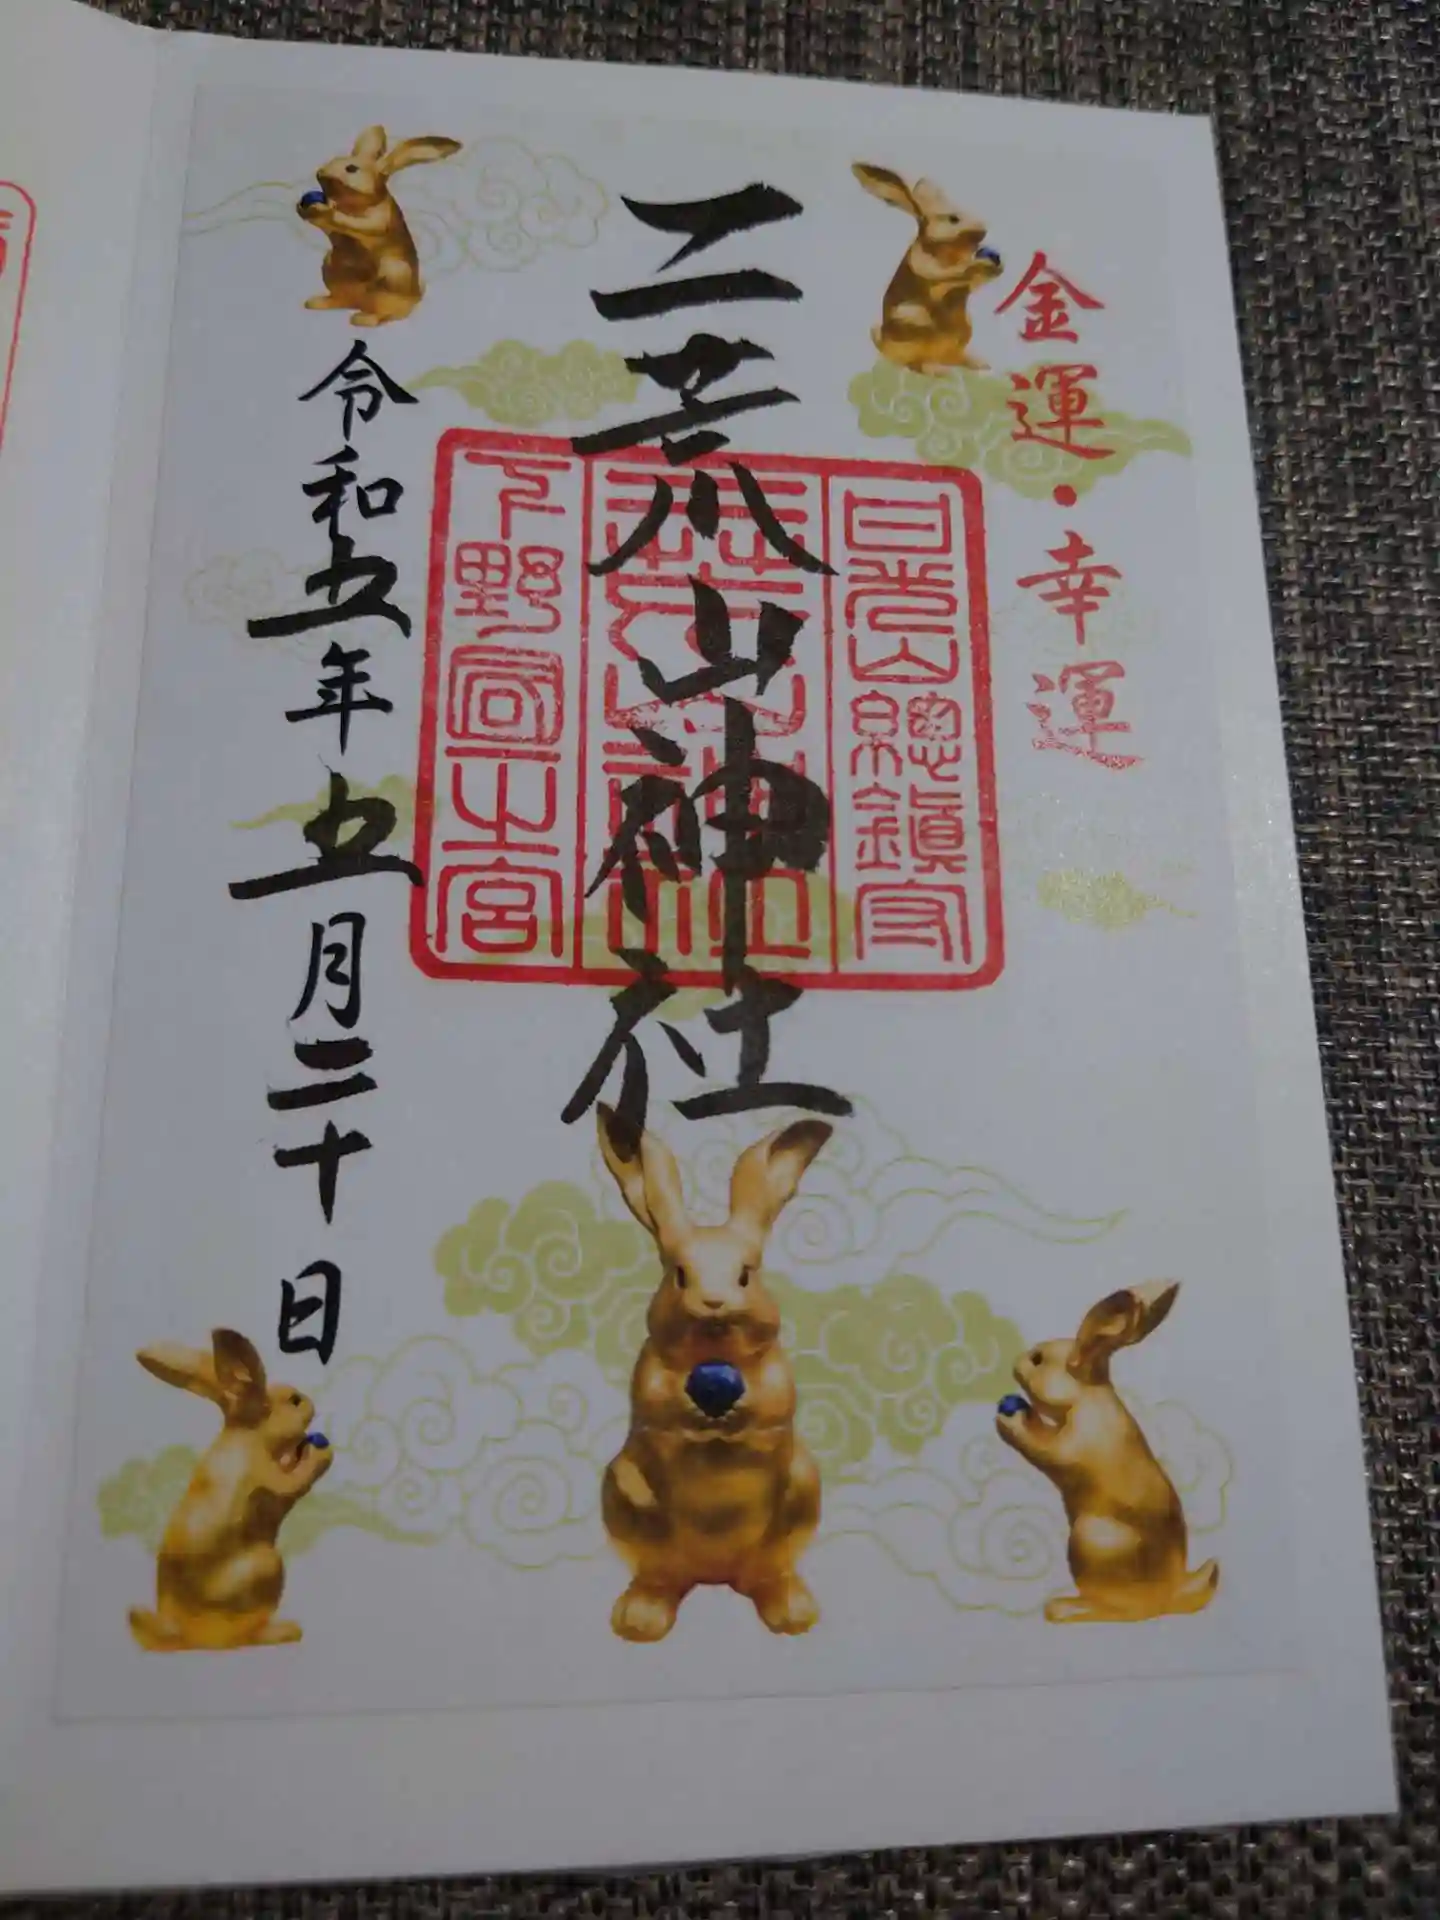 金運・幸運
二荒山神社
日光山總鎮守
下野國一之宮
令和五年五月二十日